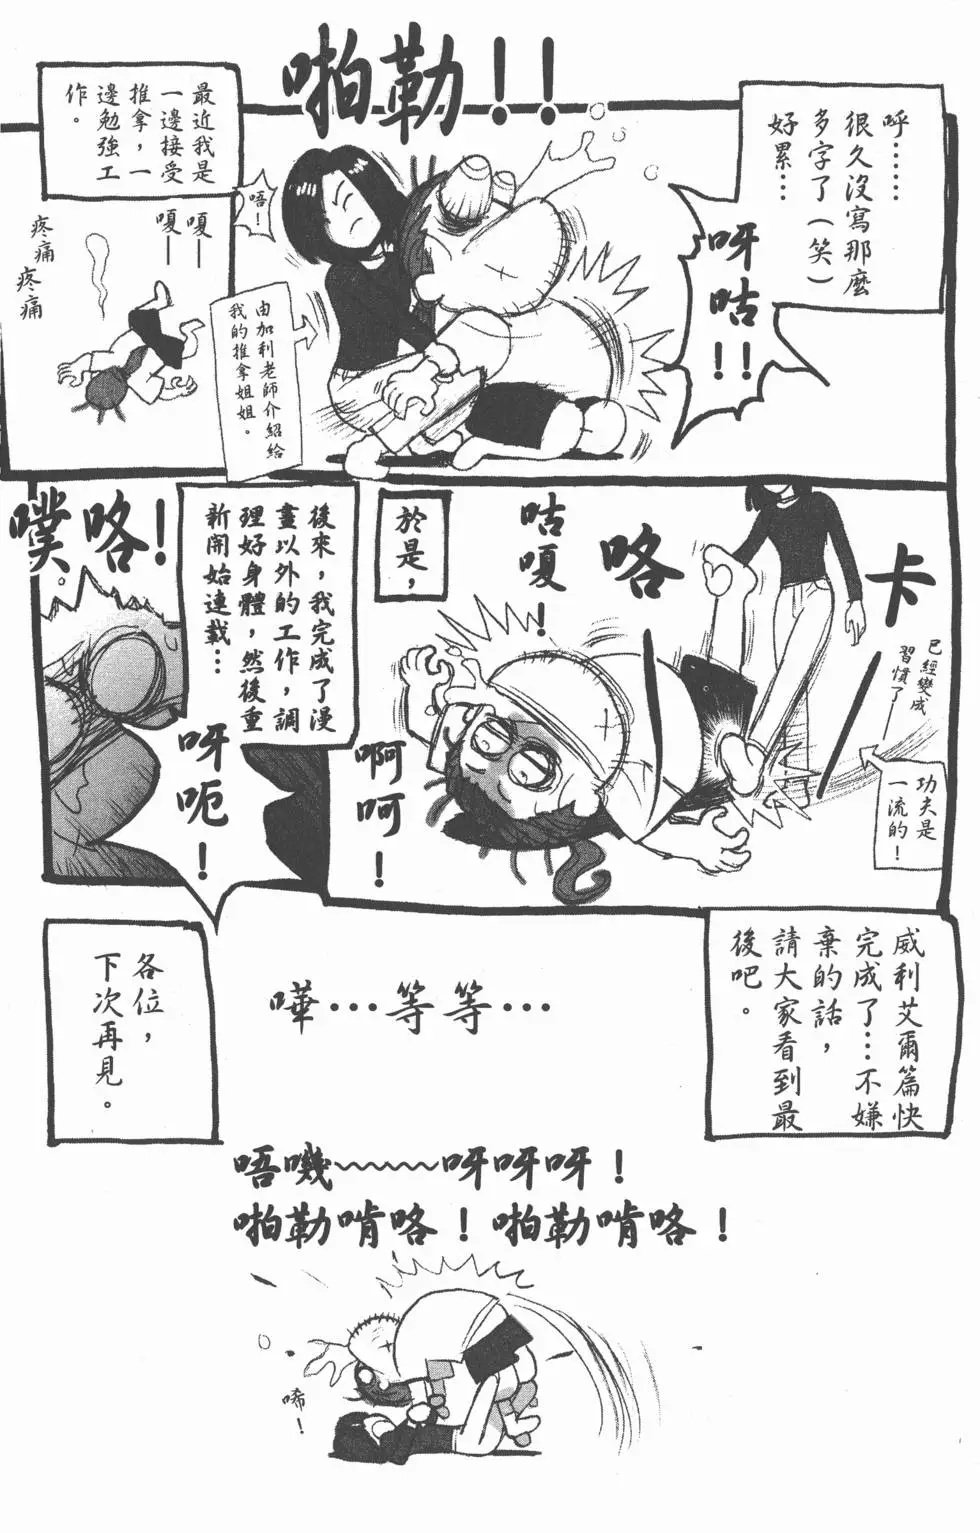 呼……
很久沒寫那麼
多字了（笑）
好累…
呀咕!!
啪勒!!
唔！
由加利老師介紹給
我的推拿姐姐。
最近我是
一邊接受
推拿，一
邊勉強工
作。
嗄—
嗄—
疼痛
疼痛
卡
咯
咕嘎！
已經變成
習慣了—
功夫是
一流的！
啊呵！
於是，
後來，我完成了漫
畫以外的工作，調
理好身體，然後重
新開始連載…
噗咯！
呀呃！
威利艾爾篇快
完成了…不嫌
棄的話，
請大家看到最
後吧。
嘩…等等…
各位，
下次再見。
唔嘰~~~~呀呀呀！
啪勒啃咯！啪勒啃咯！
唏！